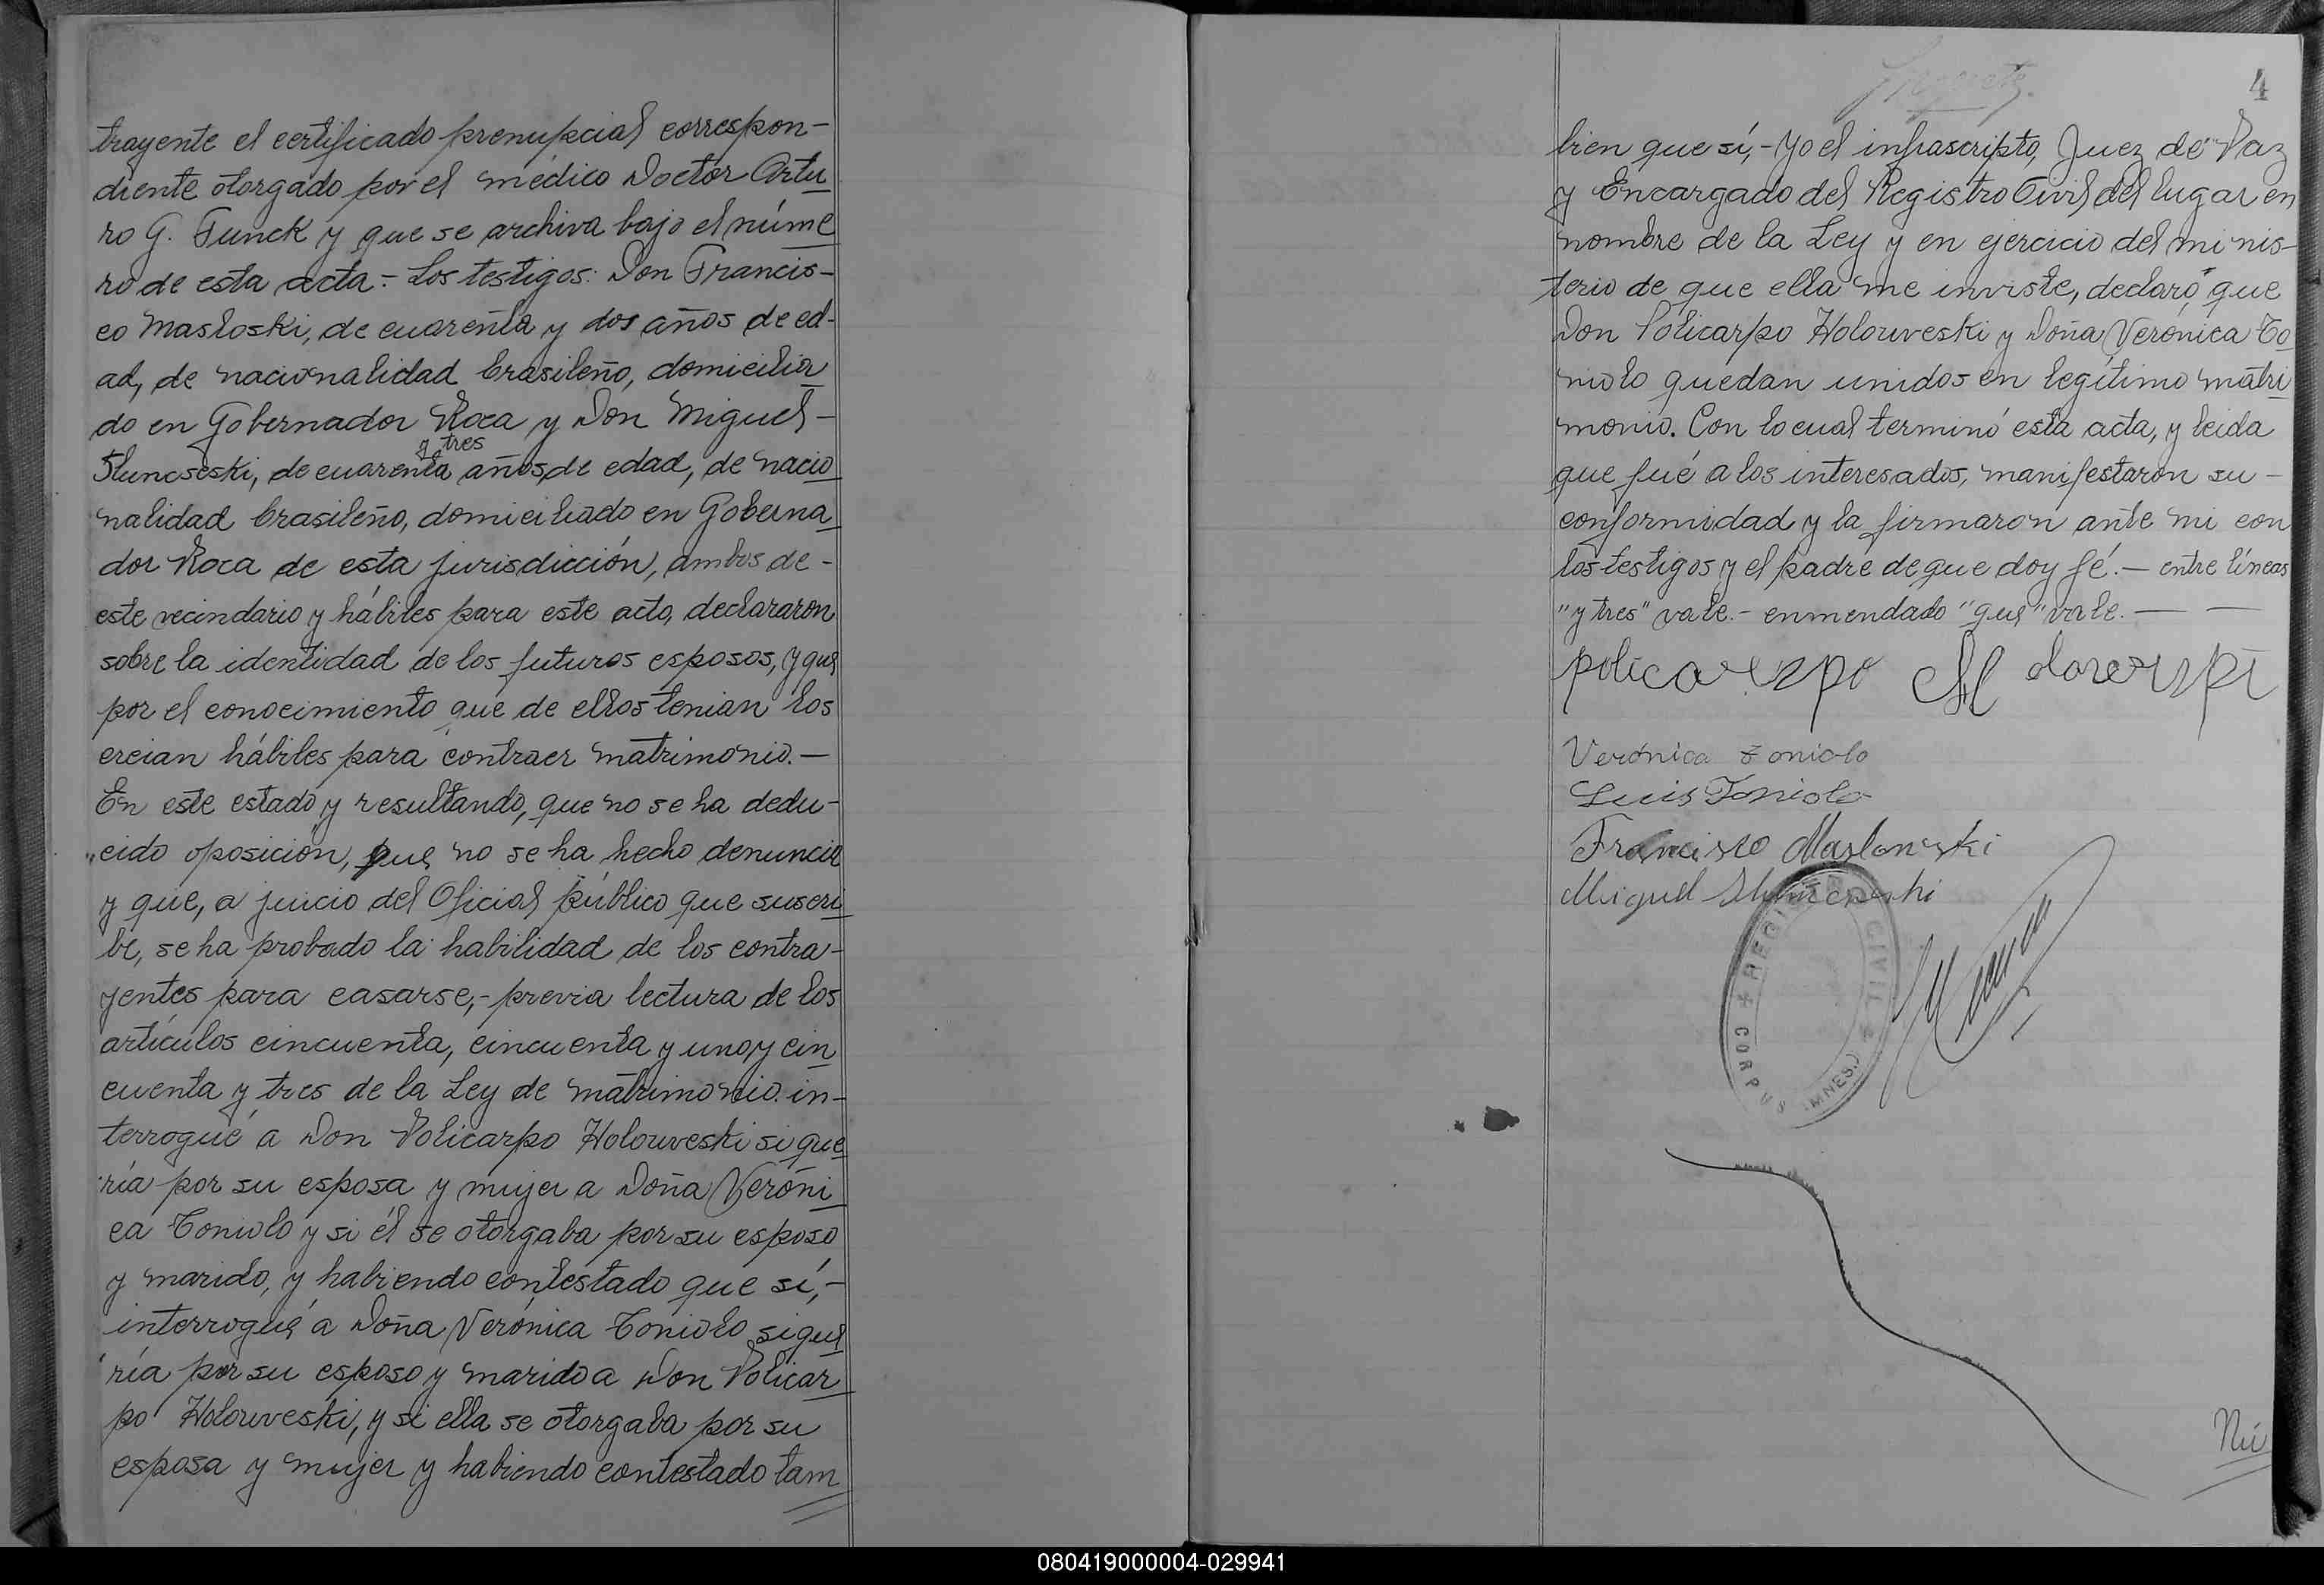 trayente el certificado prenupcial correspon-
diente otorgado por el médico Doctor Artu
ro G. Funck y que se archiva bajo el núme
ro de esta acta.- Los testigos: Don Francis-
co Masloski, de cuarenta y dos años de ed-
ad, de nacionalidad brasileño, domicilia
do en Gobernador Roca y Don Miguel-
y tres
Sluncseski, de cuarenta años de edad, de nacio
nalidad brasileño, domiciliado en Goberna
dor Roca de esta jurisdicción, ambos de-
este vecindario y hábiles para este acto, declararon
sobre la identidad de los futuros esposos, y que
por el conocimiento que de ellos tenian los
creian hábiles para contraer matrimonio.-
En este estado y resultando, que no se ha dedu-
cido oposición, que no se ha hecho denuncia
y que, a juicio del Oficial público que suscri
be, se ha probado la habilidad de los contra-
yentes para casarse,- previa lectura de los
artículos cincuenta, cincuenta y uno y cin
cuenta y tres de la Ley de matrimonio in-
terrogué a Don Policarpo Holouveski si que
ría por su esposa y mujer a Doña Veróni
ca Toniolo y si él se otorgaba por su esposo
y marido, y habiendo contestado que sí,-
interrogué a Doña Verónica Toniolo si que
ría por su esposo y marido a Don Policar
po Holouveski, y si ella se otorgaba por su
esposa y mujer y habiendo contestado tam
4
bien que sí,- Yo el infrascripto, Juez de Paz
y Encargado del Registro Civil del lugar en
nombre de la Ley y en ejercicio del minis-
terio de que ella me inviste, declaro que
Don Policarpo Holouveski y Doña Verónica To
niolo quedan unidos en legítimo matri
monio. Con lo cual terminó esta acta, y leida
que fué a los interesados, manifestaron su-
conformidad y la firmaron ante mi con
los testigos y el padre de que doy fé.- entre líneas
"y tres" vale.- enmendado "que" vale.-
policarpo
Verónica Toniolo
Luis Toniolo
Francisco Maslowski
Miguel
REGISTRO CIVIL
CORPUS (MNES.)
Nú
080419000004-029941